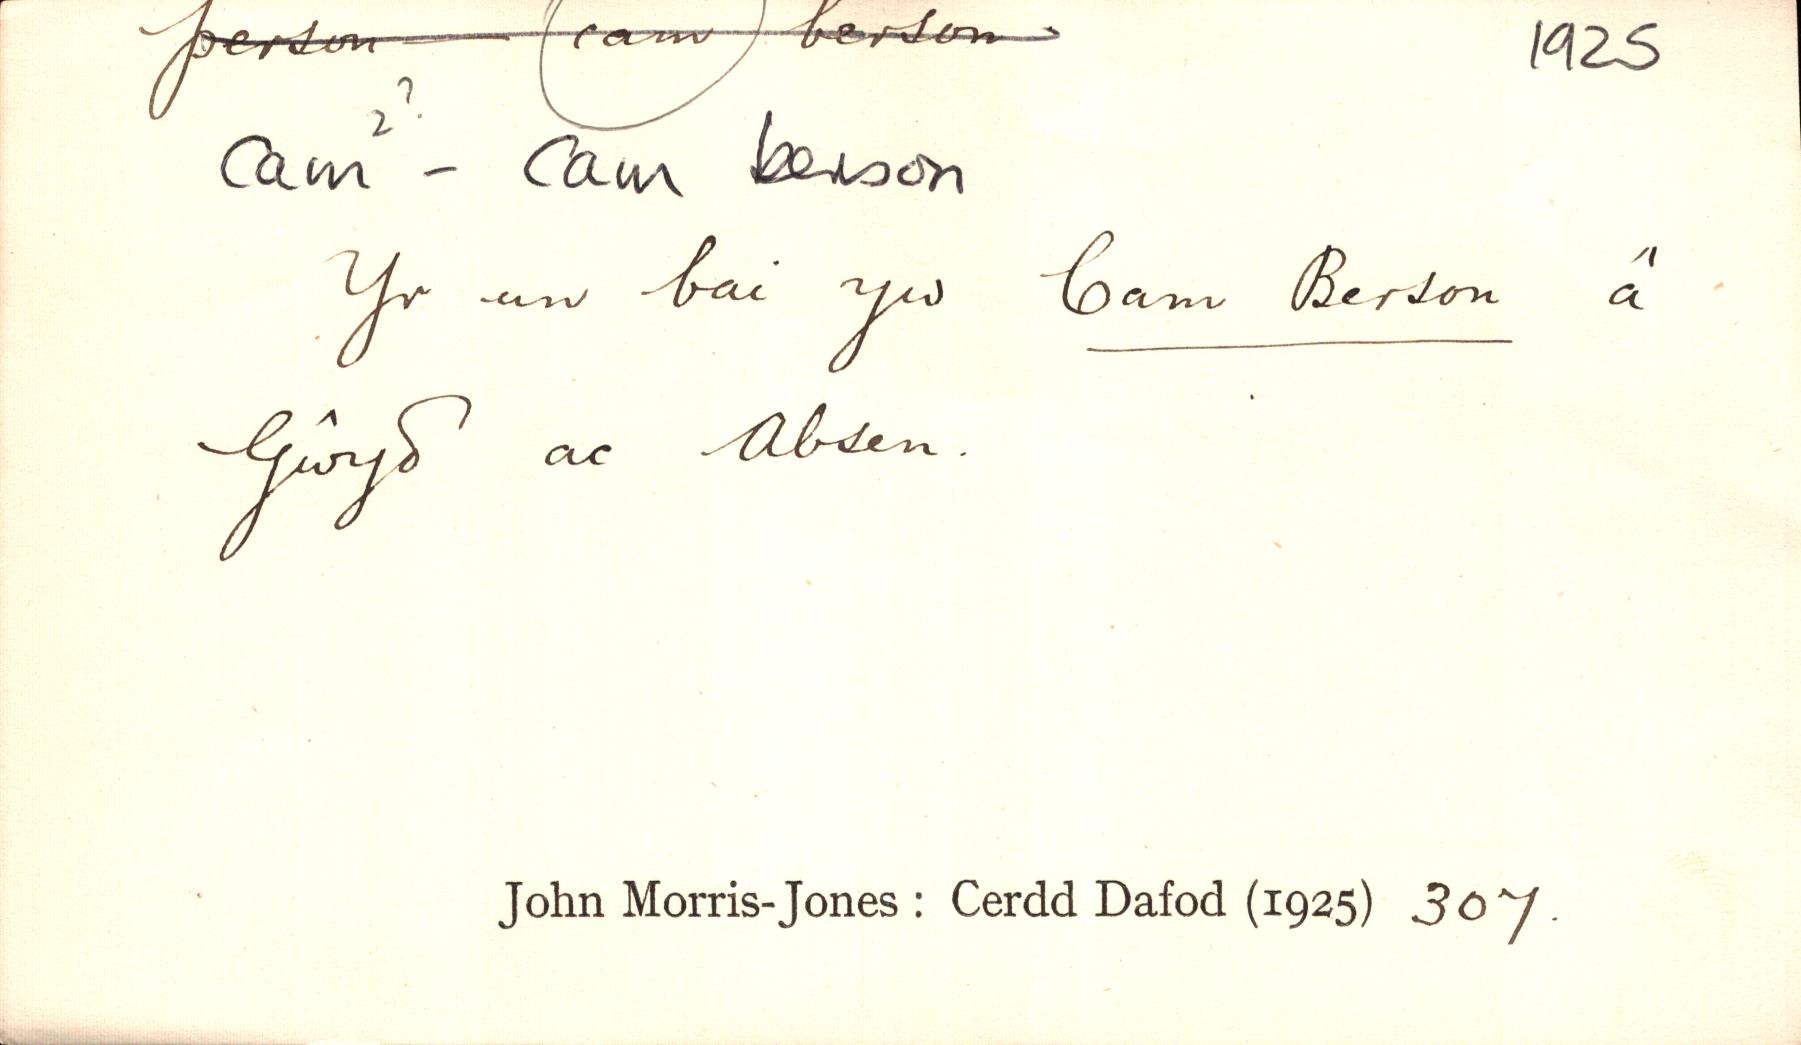 person — cam berson 1925
cam²? – cam berson
Yr un bai yw Cam Berson â
Gŵyδ ac Absen.
John Morris-Jones : Cerdd Dafod (1925) 307.